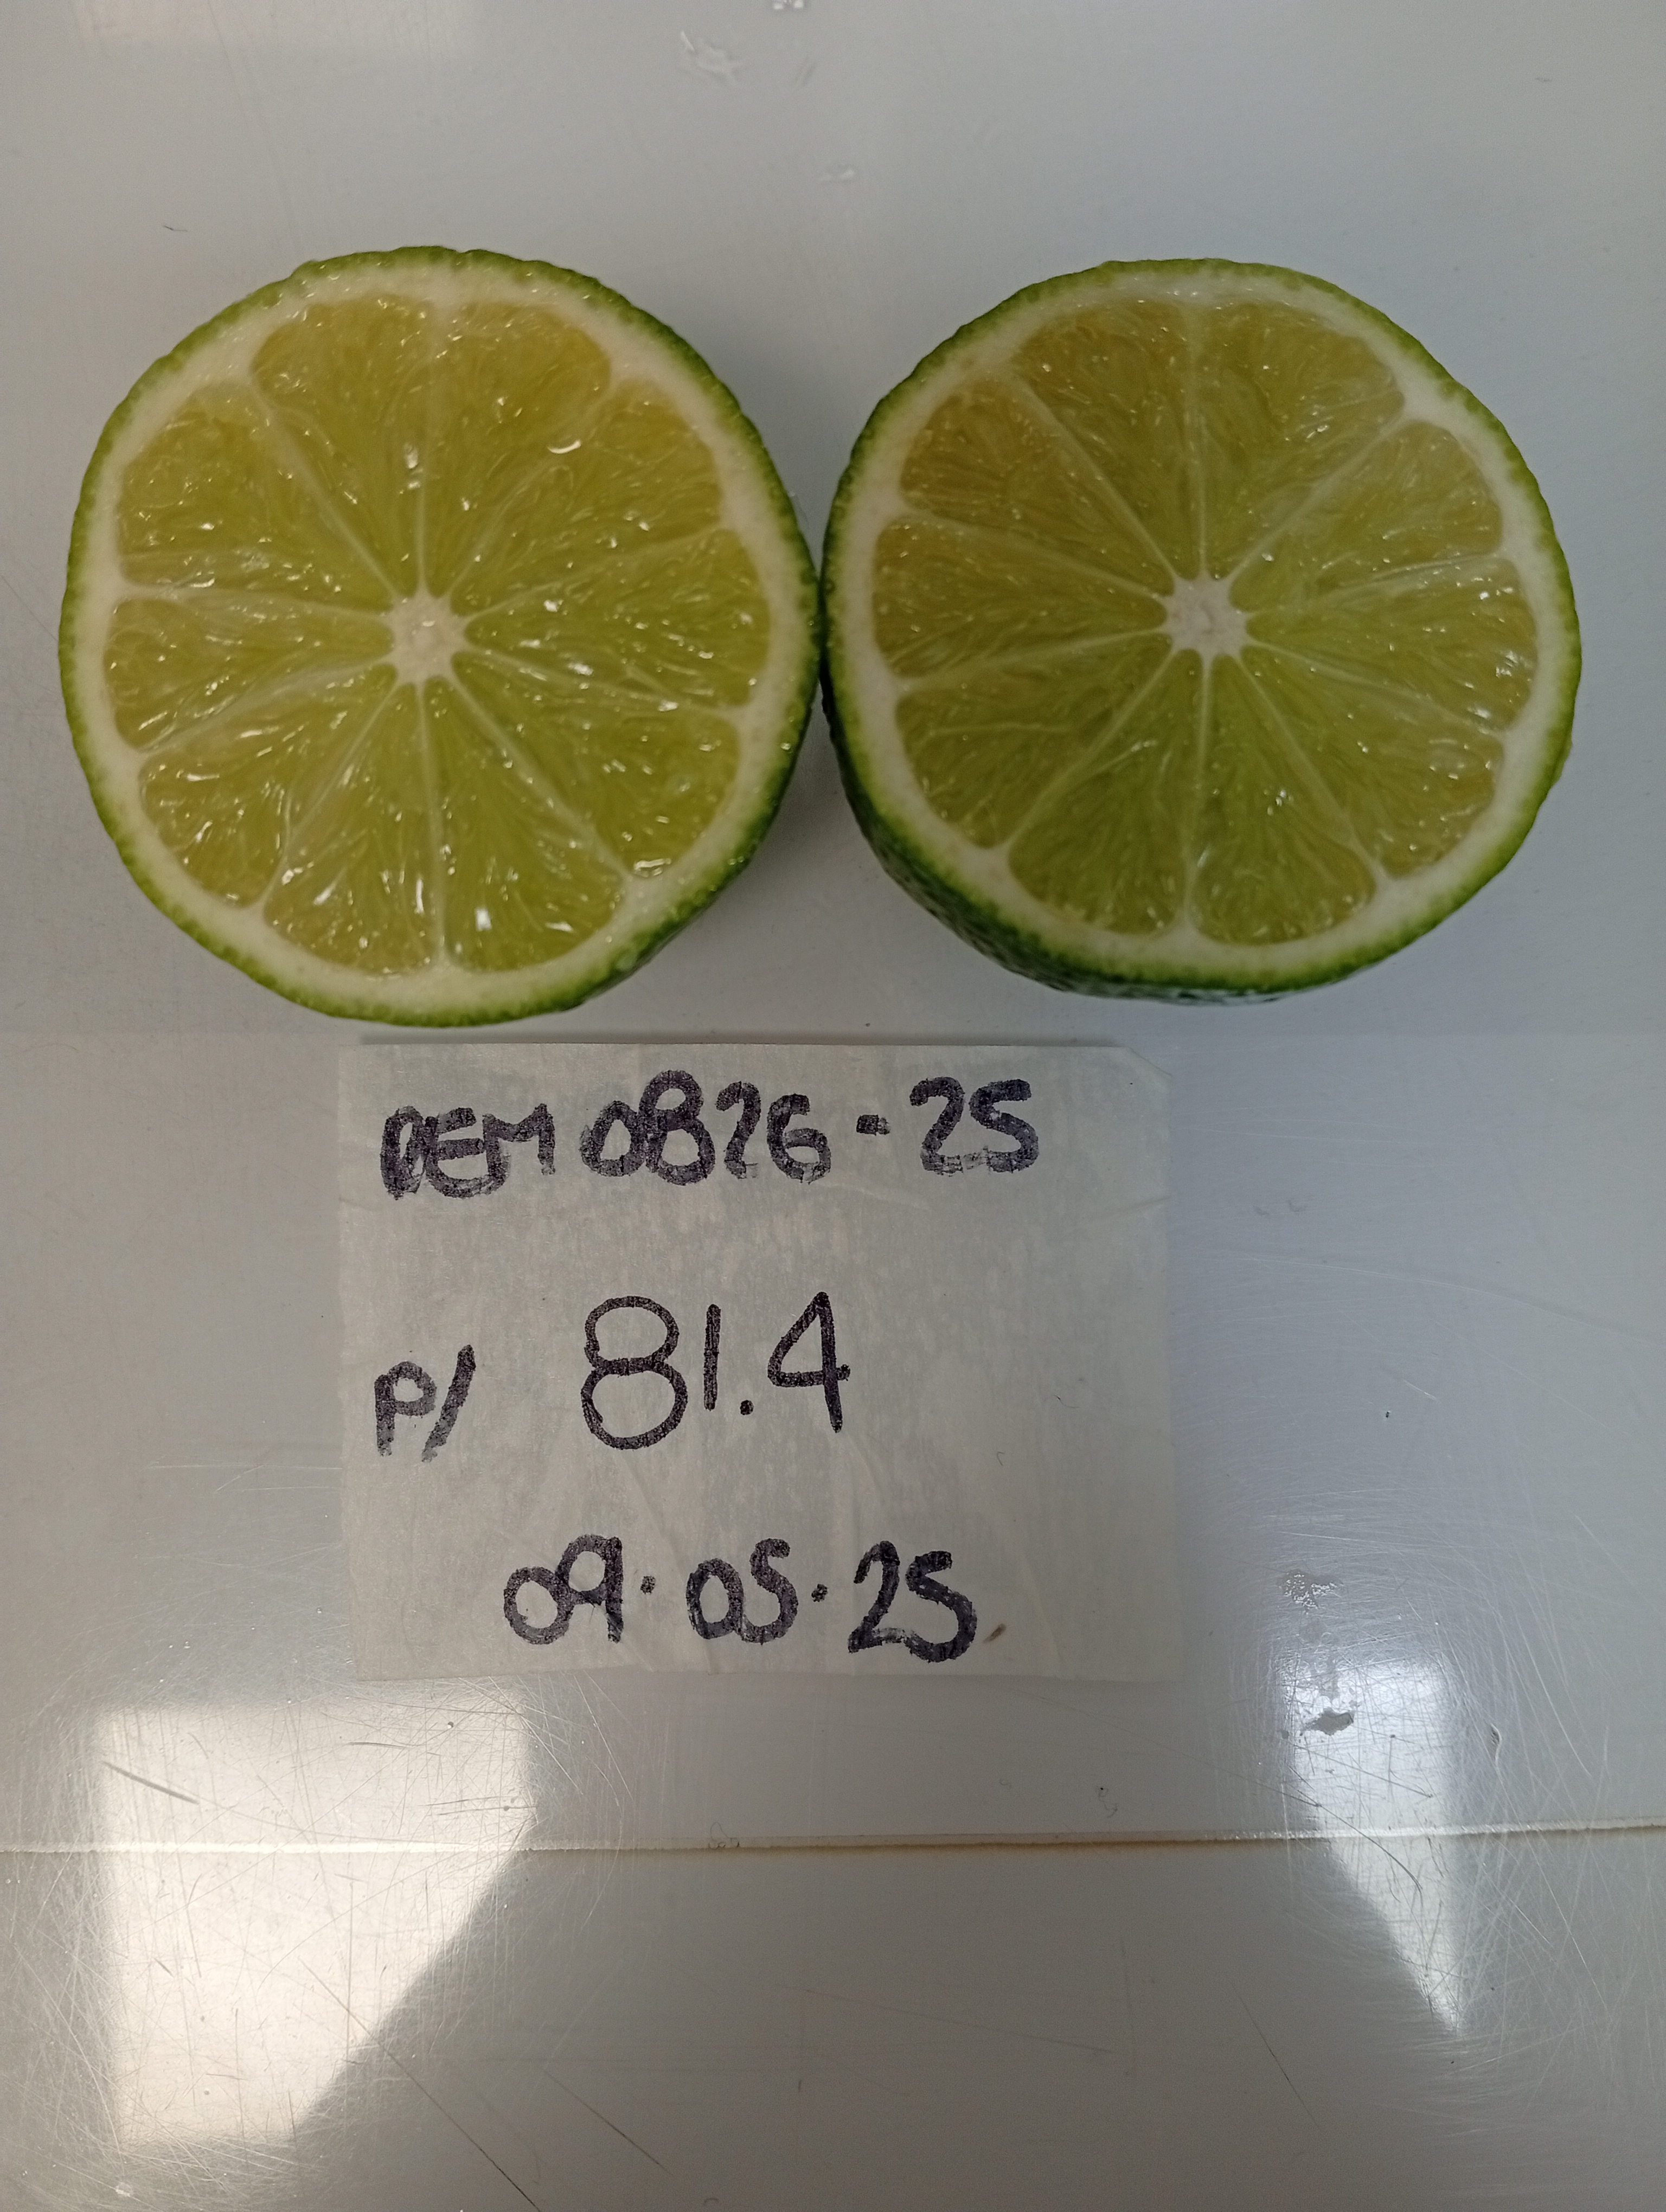 DEM 0826-25
P/ 81.4
09.05.25